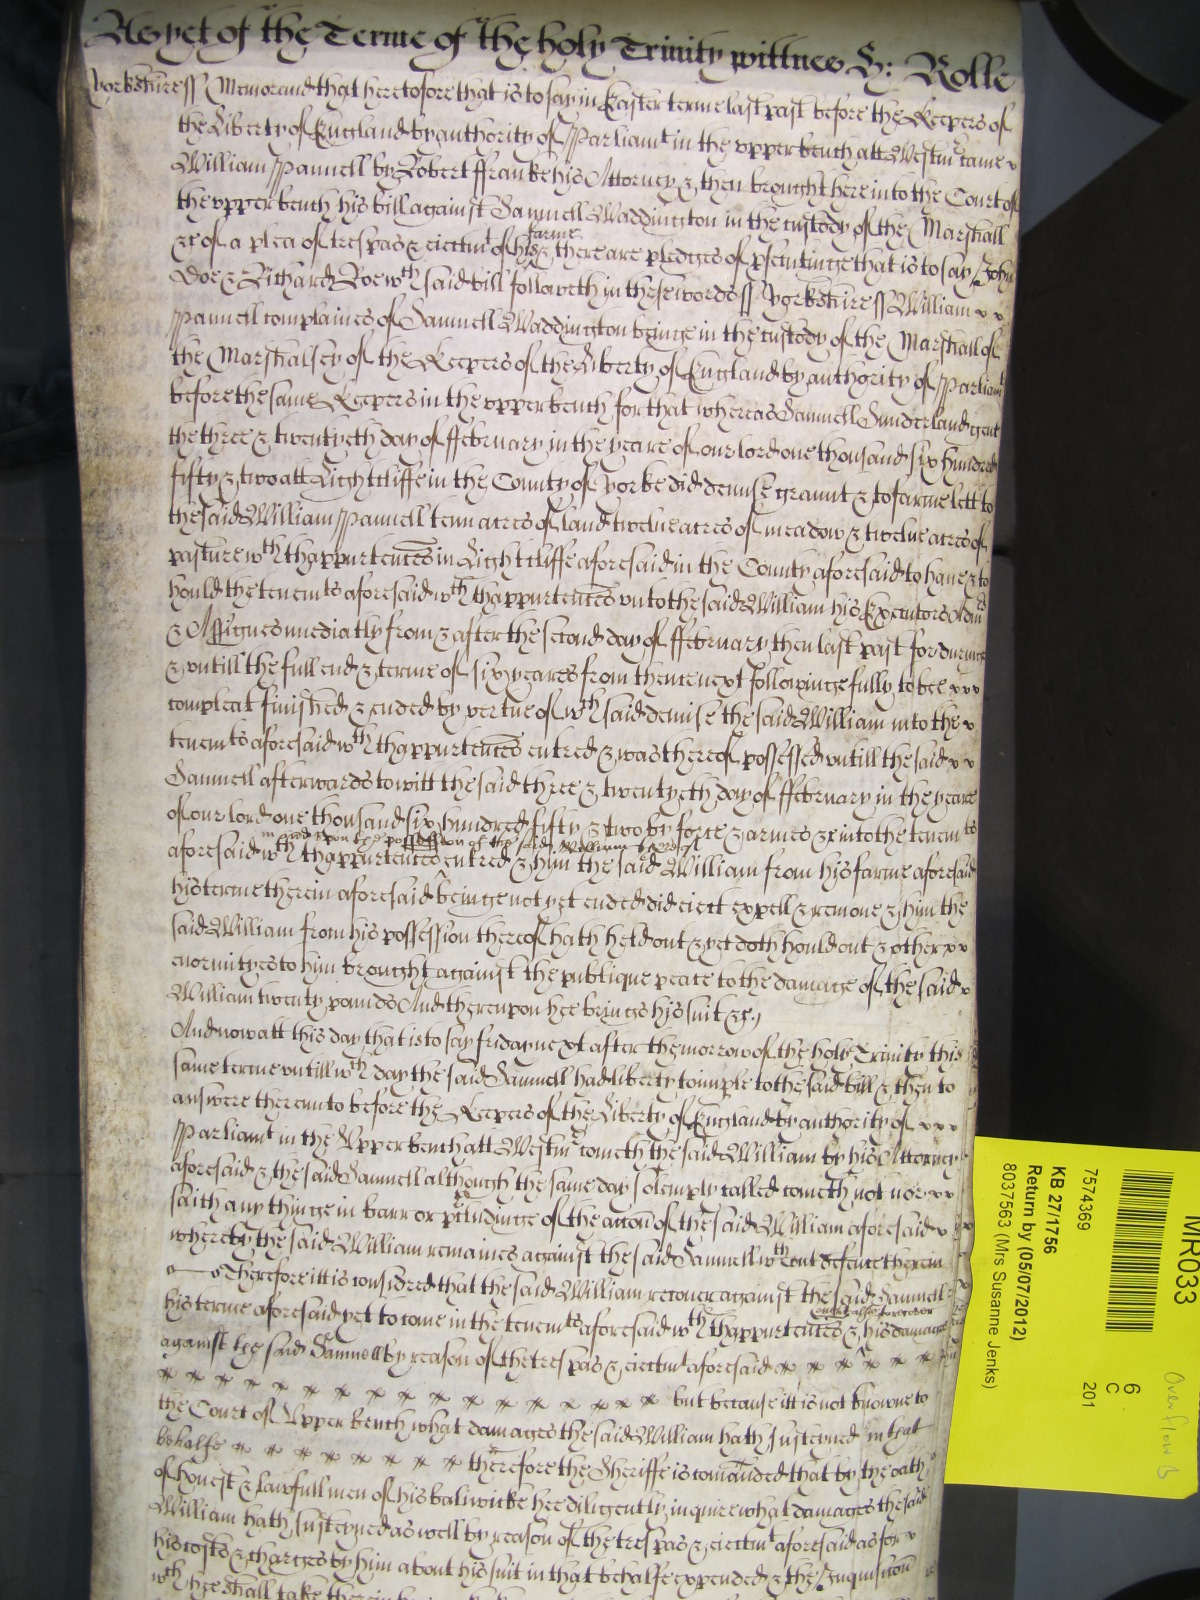 As yet of the Terme of the holy Trinity wittnes H: Rolle
Yorkshire ss Memorand that heretofore that is to say in Easter terme last past before the Keepers of
the Liberty of England by authority of Parliamt in the upper bench att Westmr came
William Pannell by Robert ffranke his Attorney & then brought here into the Court of
the upper bench his bill against Samuell Waddington in the custody of the Marshall
farme
&c of a plea of trespas & eiectmt of his & there are pledges of psecutinge that is to say John
Doe & Richard Roe wch said bill followeth in these words ss Yorkshire ss William
Pannell complaines of Samuell Waddington beinge in the custody of the Marshall of
the Marshalsey of the Keepers of the Liberty of England by authority of Parliamt
before the same Keepers in the upper bench for that whereas Samuell Sunderland gent
the three & twentyeth day of ffebruary in the yeare of our lord one thousand six hundred
fifty & two att Lightcliffe in the County of Yorke did demise graunt & to farme lett to
the said William Pannell tenn acres of land twelue acres of meadow & twelue acres of
pasture wth thappurtences in Lightcliffe aforesaid in the County aforesaid to haue & to
hould the tenemts aforesaid wth thappurtences vnto the said William his Executors Adm
& Assignes imediatly from & after the second day of ffebruary then last past for duringe
& vntill the full end & terme of six yeares from thence next followinge fully to bee
compleat finished & ended by vertue of wch said demise the said William into the
tenemts aforesaid wth thappurtences entred & was thereof possessed vntill the said
Samuell afterwards to witt the said three & twentyeth day of ffebruary in the yeare
of our lord one thousand six hundred fifty & two by force & armes &c into the tenemts
in and upon the possession of the said William
aforesaid wth thappurtences entred & him the said William from his farme aforesaid
his terme therein aforesaid beinge not yet ended did eiect expell & remoue & him the
said William from his possession thereof hath held out & yet doth hould out & other
enormityes to him brought against the publique peace to the damage of the said
William twenty pounds And thereupon hee brings his suit &c
And now att this day that is to say friday next after the morrow of the holy Trinity this
same terme untill wch day the said Samuell had liberty to imple to the said bill & then to
answere thereunto before the Keepers of the Liberty of England by authority of
Parliamt in the Upper bench att Westmr cometh the said William by his Attorney
aforesaid & the said Samuell although the same day solemply called cometh not nor
saith any thinge in barr or pcludinge of the accon of the said William aforesaid
whereby the said William remaines against the said Samuell wthout defence therein
Therefore itt is considred that the said William recouer against the said Samuell
ought alsoe to recover
his terme aforesaid yet to come in the tenemts aforesaid wth thappurtences & his damages
against the said Samuell by reason of the trespas & eiectmt aforesaid
but because itt is not knowne to
the Court of Upper bench what damages the said William hath susteyned in that
behalfe therefore the Sheriffe is comanded that by the oath
of honest & lawfull men of his baliwicke hee diligently inquire what damages the said
William hath susteyned as well by reason of the trespas & eiectmt aforesaid as for
his costs & charges by him about his suit in that behalfe expended & the Inquisicon
wch hee shall take therein
MR033
7574369
KB 27/1756
Return by (05/07/2012)
8037563 (Mrs Susanne Jenks)
6
C
201
Overflow B